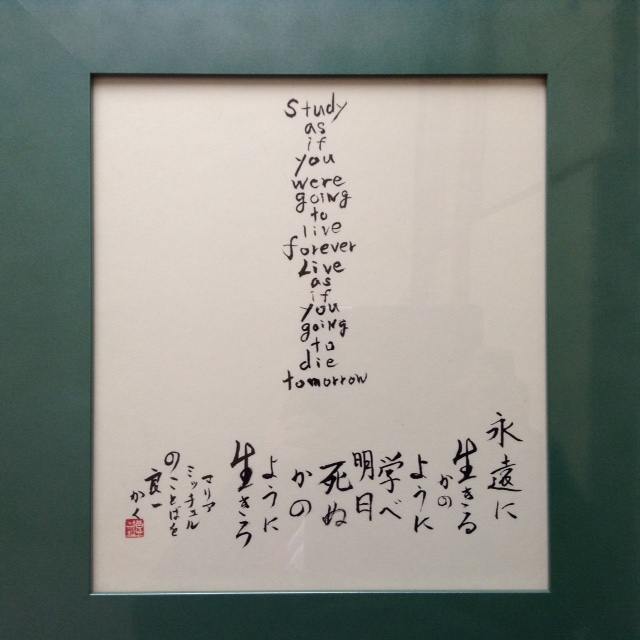 Study
as
if
you
were
going
to
live
forever
Live
as
if
you
going
to
die
tomorrow
永遠に
生きる
かの
ように
学べ
明日
死ぬ
かの
ように
生きろ
マリア
ミッチェル
のことばを
良一
かく